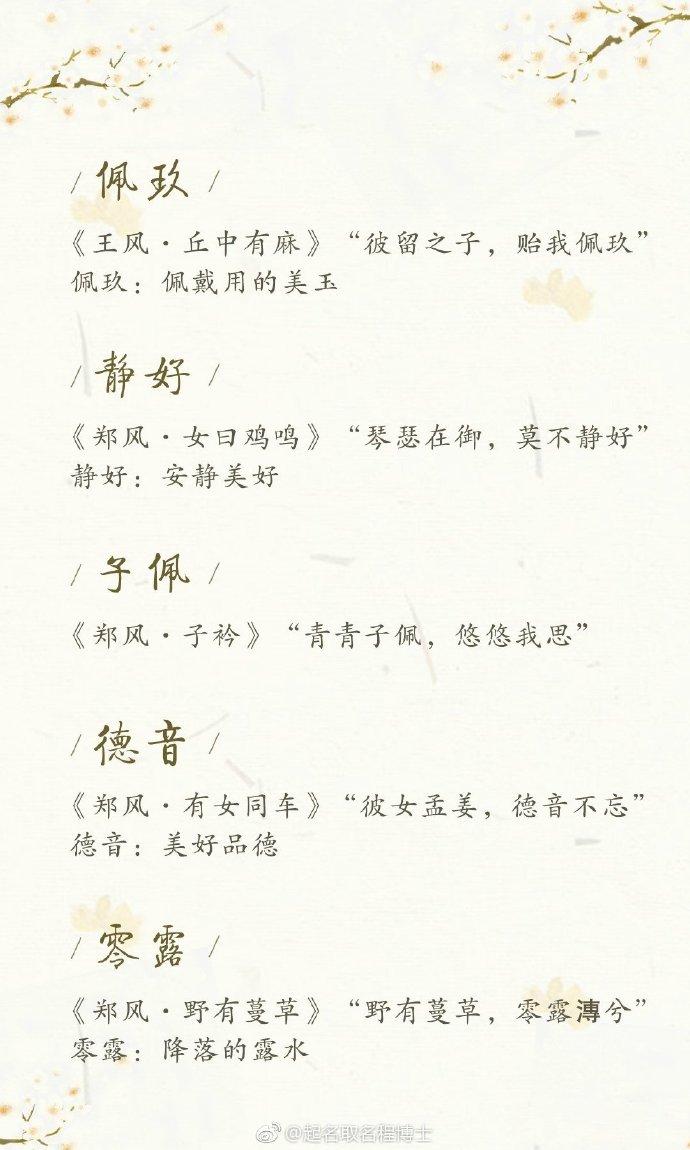 / 佩玖 /
《王风·丘中有麻》“彼留之子，贻我佩玖”
佩玖：佩戴用的美玉
/ 静好 /
《郑风·女曰鸡鸣》“琴瑟在御，莫不静好”
静好：安静美好
/ 子佩 /
《郑风·子衿》“青青子佩，悠悠我思”
/ 德音 /
《郑风·有女同车》“彼女孟姜，德音不忘”
德音：美好品德
/ 零露 /
《郑风·野有蔓草》“野有蔓草，零露漙兮”
零露：降落的露水
@起名取名程博士